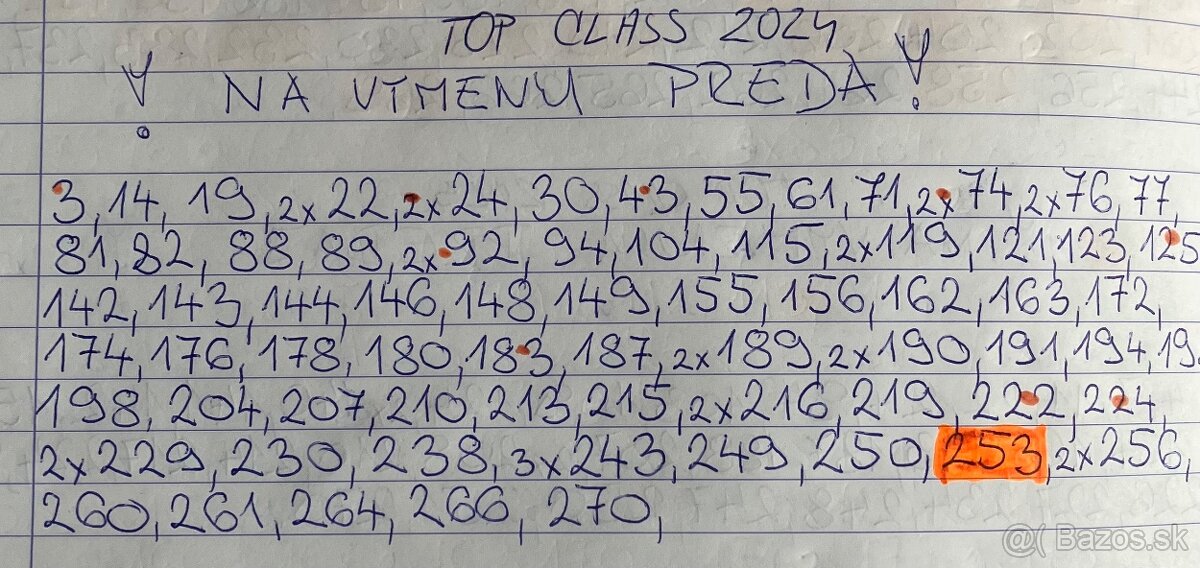 TOP CLASS 2024
! NA VÝMENU PREDÁ !
3, 14, 19, 2x22, 2x24, 30, 43, 55, 61, 71, 2x74, 2x76, 77,
81, 82, 88, 89, 2x92, 94, 104, 115, 2x119, 121, 123, 125
142, 143, 144, 146, 148, 149, 155, 156, 162, 163, 172,
174, 176, 178, 180, 183, 187, 2x189, 2x190, 191, 194, 19
198, 204, 207, 210, 213, 215, 2x216, 219, 222, 224,
2x229, 230, 238, 3x243, 249, 250, 253, 2x256,
260, 261, 264, 266, 270,
@( Bazos.sk